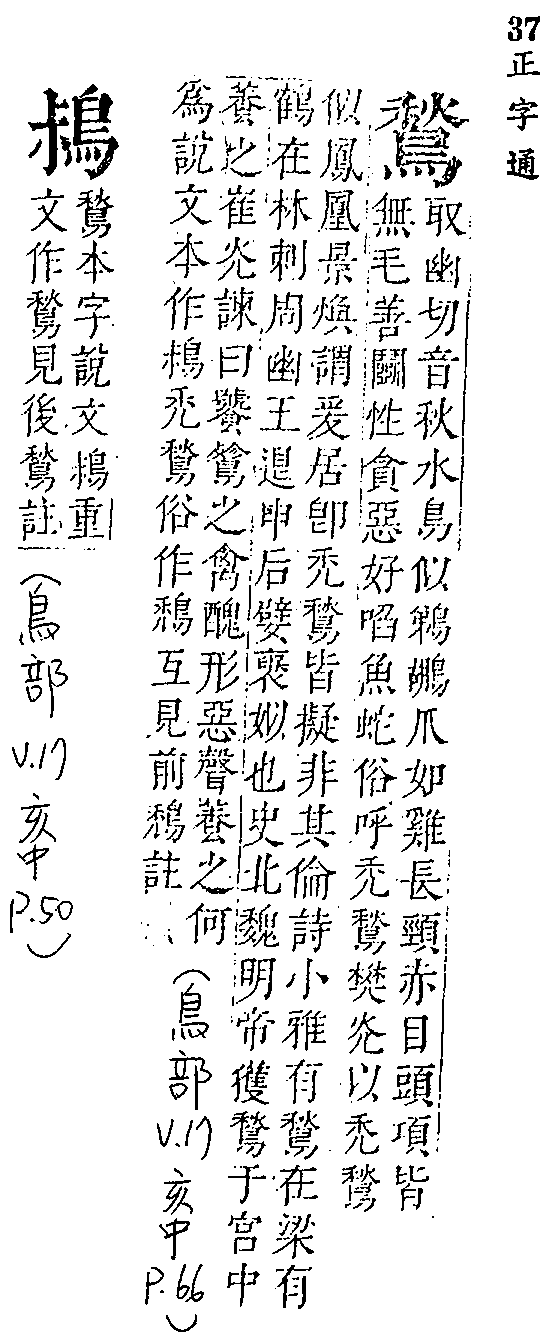 37 正字通
鶖
取幽切音秋水鳥似鵜鶘爪如雞長頸赤目頭項皆
無毛善鬭性貪惡好啗魚蛇俗呼禿鶖樊光以禿鶖
似鳳凰景煥謂爰居卽禿鶖皆擬非其倫詩小雅有鶖在梁有
鶴在林刺周幽王退申后嬖褒姒也史北魏明帝獲鶖于宮中
養之崔光諫曰饕餮之禽醜形惡聲養之何
爲說文本作𪀌禿鶖俗作鵚互見前鵚註
(鳥部 V.17 亥中 P.66)
𪀌
鶖本字說文𪀌重
文作鶖見後鶖註
(鳥部 V.17 亥中 P.50)